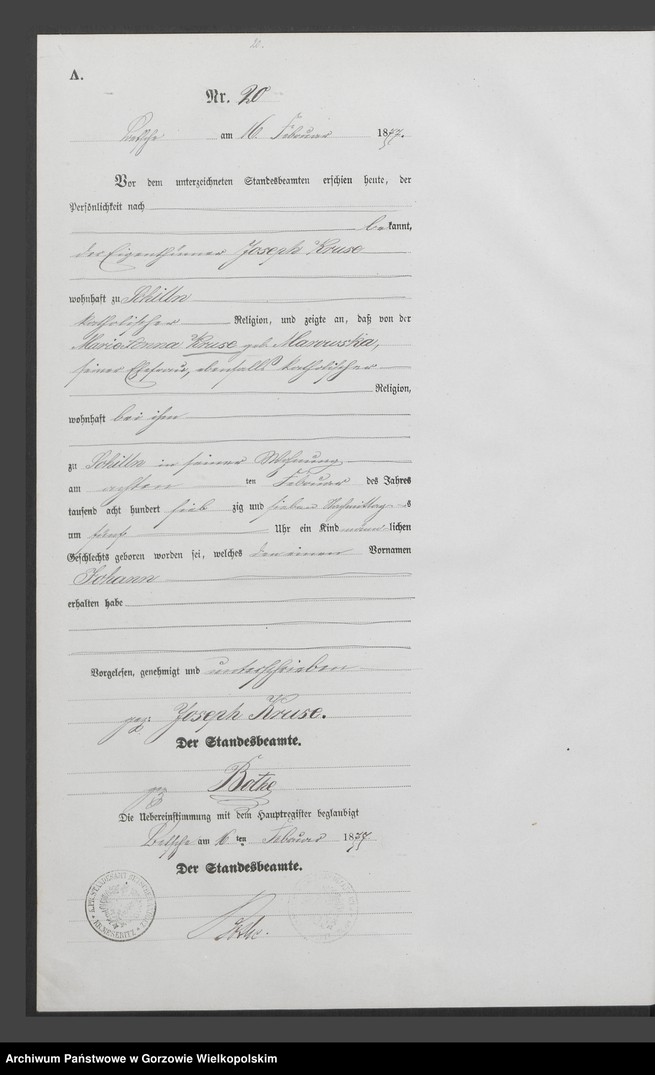 A.
Nr. 20
Betsche am 16 Februar 1877.
Vor dem unterzeichneten Standesbeamten erschien heute, der
Persönlichkeit nach
bekannt,
der Eigenthümer Joseph Kruse
wohnhaft zu Schilln
katholischer Religion, und zeigte an, daß von der
Marie Anna Kruse geb. Maruska,
seiner Ehefrau, ebenfalls katholischer
Religion,
wohnhaft bei ihm
zu Schilln in seiner Wohnung
am achten ten Februar des Jahres
tausend acht hundert siebzig und sieben Nachmittags
um fünf Uhr ein Kind männlichen
Geschlechts geboren worden sei, welches den einen Vornamen
Johann
erhalten habe
Vorgelesen, genehmigt und unterschrieben
gez. Joseph Kruse.
Der Standesbeamte.
gez. Bothe
Die Uebereinstimmung mit dem Hauptregister beglaubigt
Betsche am 16 ten Februar 1877.
Der Standesbeamte.
Bothe.
Archiwum Państwowe w Gorzowie Wielkopolskim